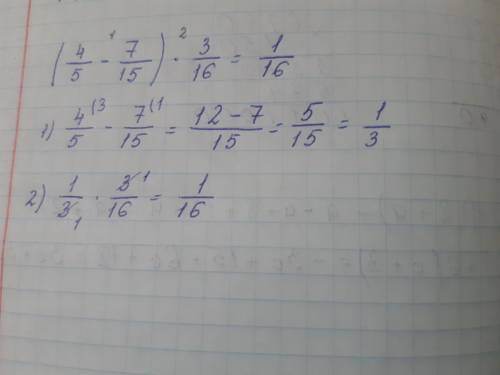 (4/5 -¹ 7/15) ·² 3/16 = 1/16
1) 4/5 (3 - 7/15 (1 = 12-7/15 = 5/15 = 1/3
2) 1/3 1 · 3/16 1 = 1/16